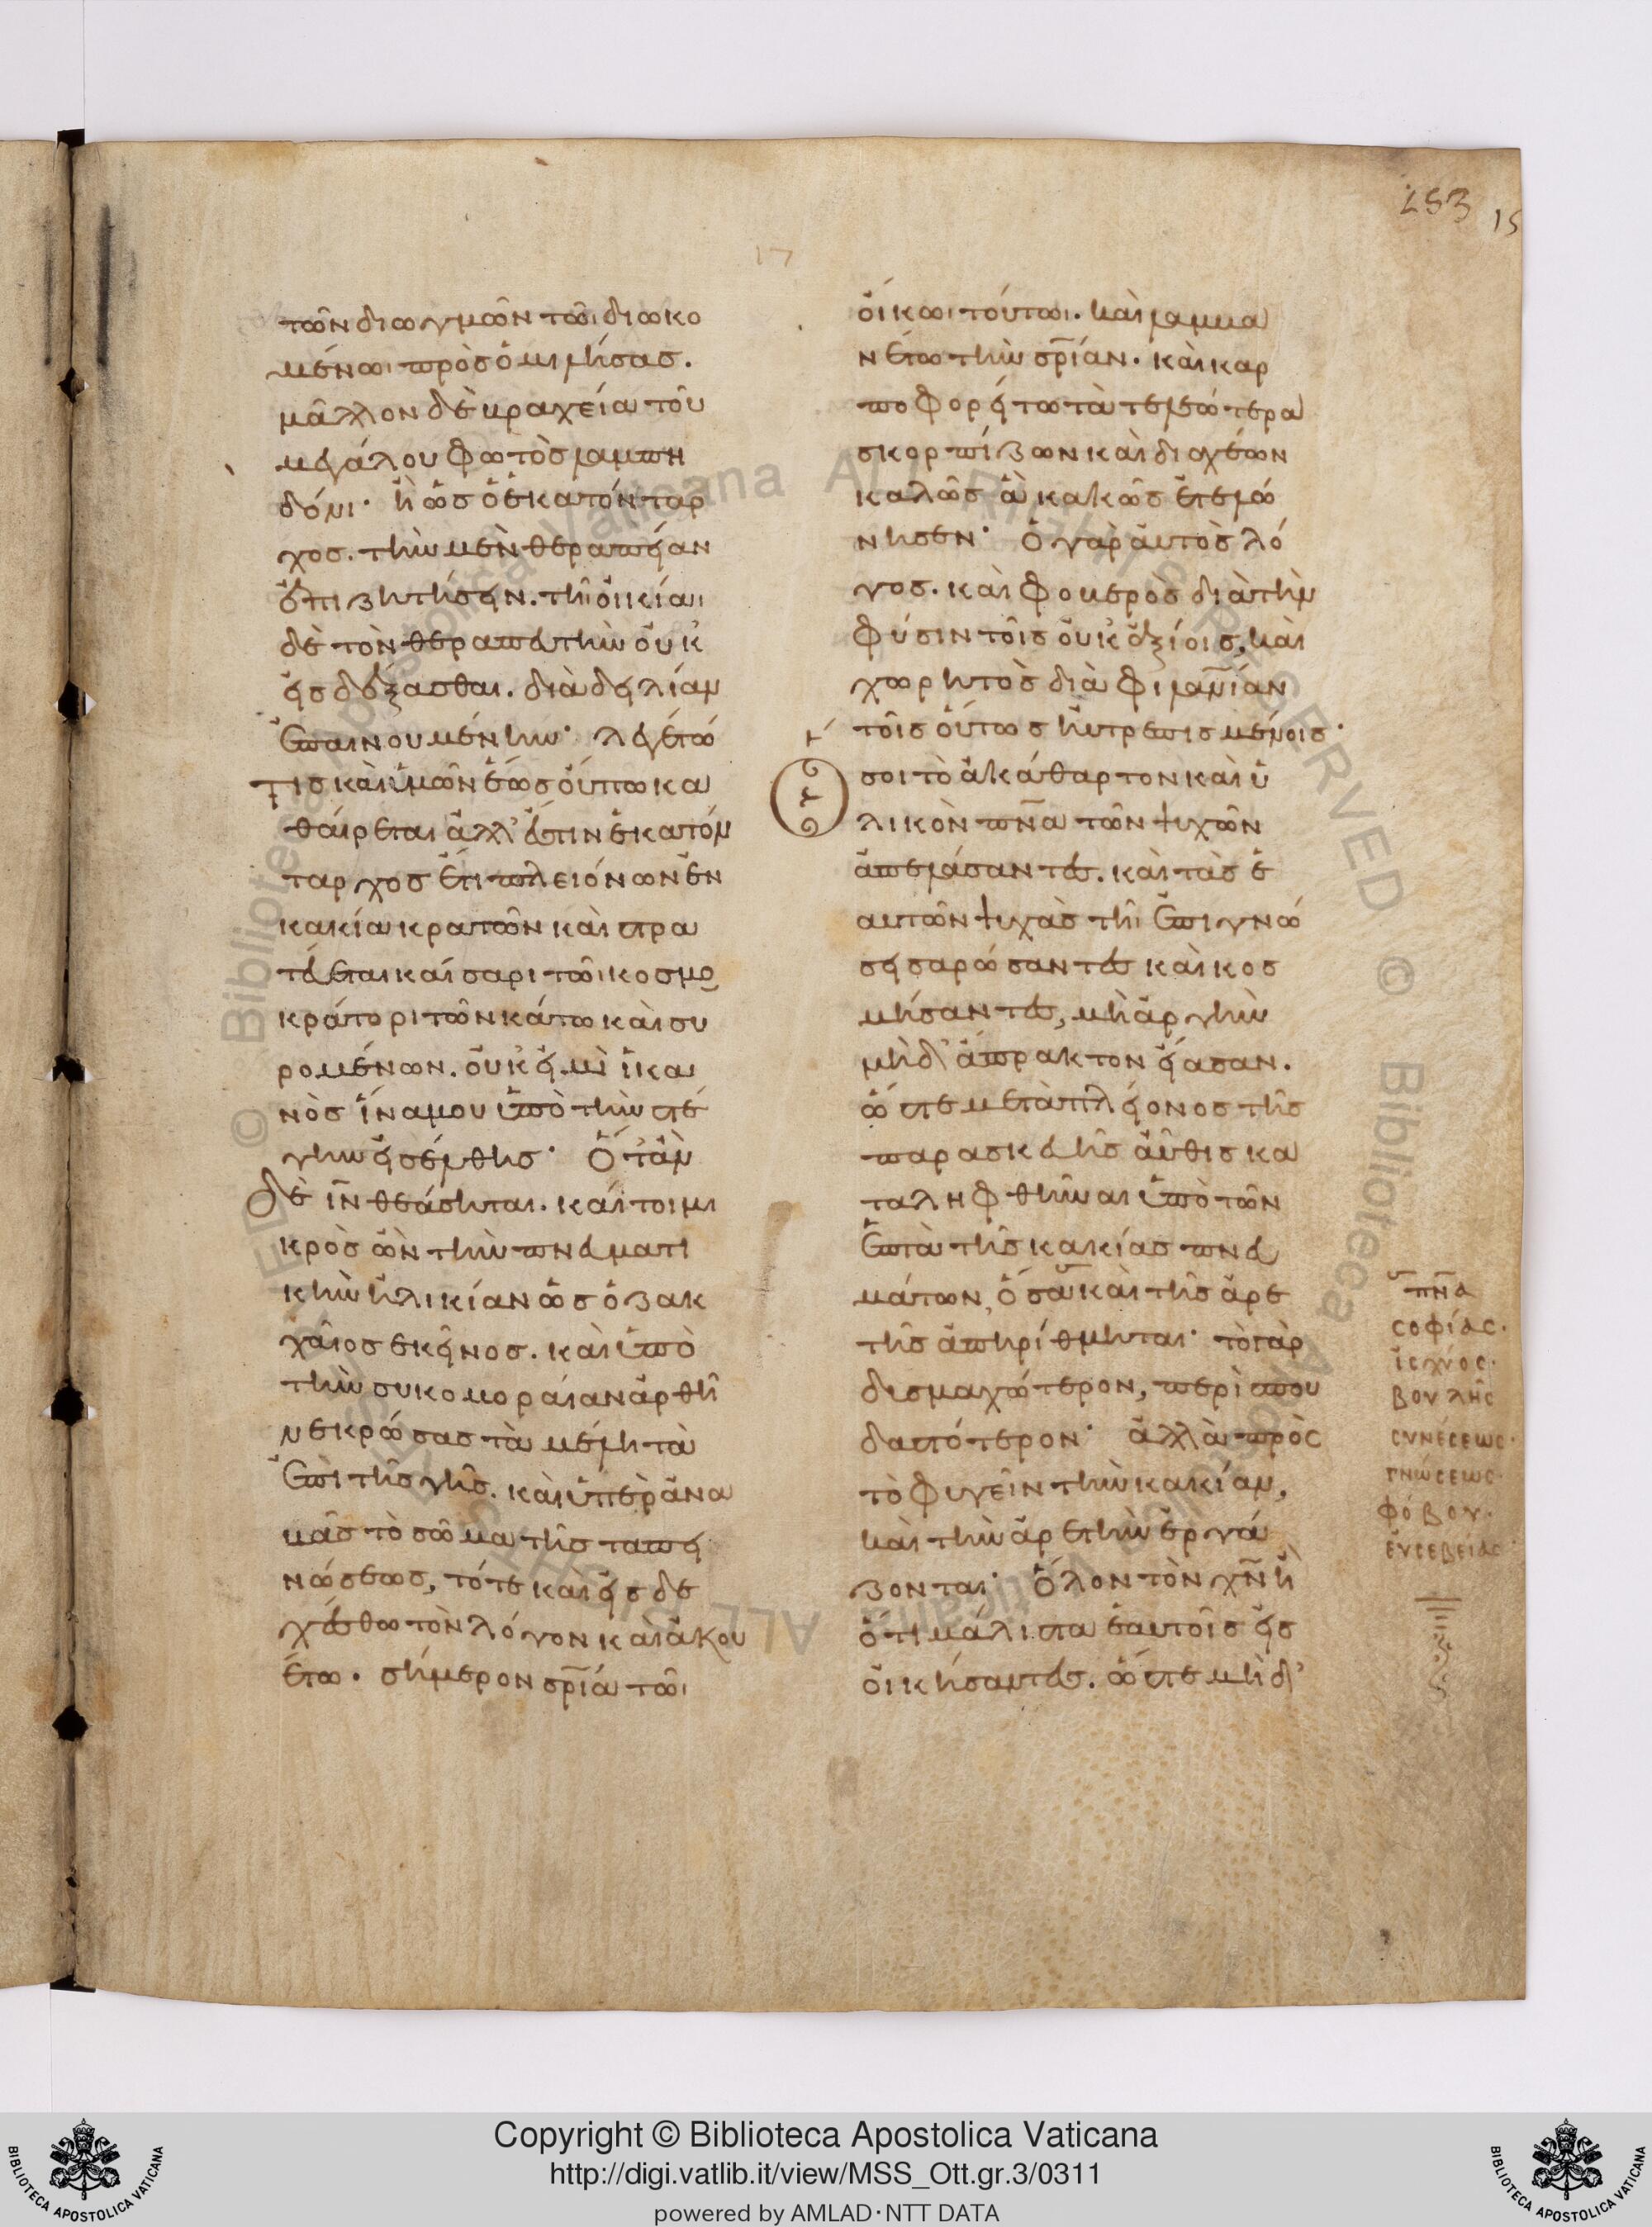 253 15
17
τῶν διωγμῶν τῶι διωκο
μένωι προσομιλήσας.
μᾶλλον δὲ βραχεῖα τοῦ
μεγάλου φωτὸς λαμπη
δόνι· ἢ ὡς ὁ ἑκατόνταρ
χος. τὴν μὲν θεραπείαν
ἐπιζητήσειν. τῆι οἰκίαι
δὲ τὸν θεραπευτὴν οὐκ
εἰσδέξασθαι. διὰ δειλίαν
ἐπαινουμένην· λεγέτω
τις καὶ ὑμῶν ἕως οὔπω κα
θαίρεται ἀλλ' ἔστιν ἑκατόν
ταρχος ἔτι πλειόνων ἐν
κακία κρατῶν καὶ στρα
τεύεται καίσαρι τῶι κοσμο
κράτορι τῶν κάτω καὶ συ
ρομένων. οὐκ εἰμὶ ἱκα
νὸς ἵνα μου ὑπὸ τὴν στέ
γην εἰσέλθης· Ὅταν
δὲ ἰν̅ θεάσηται. καίτοι μι
κρὸς ὢν τὴν πνευματι
κὴν ἡλικίαν ὡς ὁ ζακ
χαῖος ἐκεῖνος. καὶ ὑπὸ
τὴν συκομοραίαν ἀρθῆ
νεκρώσας τὰ μέλη τὰ
ἐπὶ τῆς γῆς. καὶ ὑπεράνα
βὰς τὸ σῶμα τῆς ταπει
νώσεως, τότε καὶ εἰσδε
χέσθω τὸν λόγον καὶ ἀκου
έτω. σήμερον σρ̅ία τῶι
οἴκωι τούτωι. καὶ λαμβα
νέτω τὴν σρ̅ίαν. καὶ καρ
ποφορείτω τὰ τελεώτερα
σκορπίζων καὶ διαχέων
καλῶς ἃ κακῶς ἐτελώ
νησεν· Ὁ γὰρ αὐτὸς λό
γος. καὶ φοβερὸς διὰ τὴν
φύσιν τοῖς οὐκ ἀξίοις, καὶ
χωρητὸς διὰ φιλαν̅ίαν
τοῖς οὕτως ηὐτρεπισμένοις·
Ὅσοι τὸ ἀκάθαρτον καὶ ὑ
λικὸν πν̅α τῶν ψυχῶν
ἀπελάσαντες. καὶ τὰς ἑ
αυτῶν ψυχὰς τῆ ἐπιγνώ
σει σαρώσαντες καὶ κοσ
μήσαντες, μὴ ἀργὴν
μὴδ' ἄπρακτον εἴασαν.
ὥστε μετὰ πλείονος τῆς
παρασκευῆς αὖθις κα
ταληφθῆναι ὑπὸ τῶν
ἑπτὰ τῆς κακίας πνευ
μάτων, ὅσα καὶ τῆς ἀρε
τῆς ἀπηρίθμηται· τὸ γὰρ
δυσμαχώτερον, περισπου
δαστότερον· ἀλλὰ πρὸς
τὸ φυγεῖν τὴν κακίαν,
καὶ τὴν ἀρετὴν ἐργά
ζονται· Ὅλον τὸν χν̅ ἢ
ὅτι μάλιστα ἑαυτοῖς εἰσ
οικήσαντες. ὥστε μὴδ'
πν̅α
σοφίας.
ἰσχύος.
βουλῆς
συνέσεως.
γνώσεως.
φόβου.
εὐσεβείας.
Copyright © Biblioteca Apostolica Vaticana
http://digi.vatlib.it/view/MSS_Ott.gr.3/0311
powered by AMLAD·NTT DATA
BIBLIOTECA APOSTOLICA VATICANA
BIBLIOTECA APOSTOLICA VATICANA